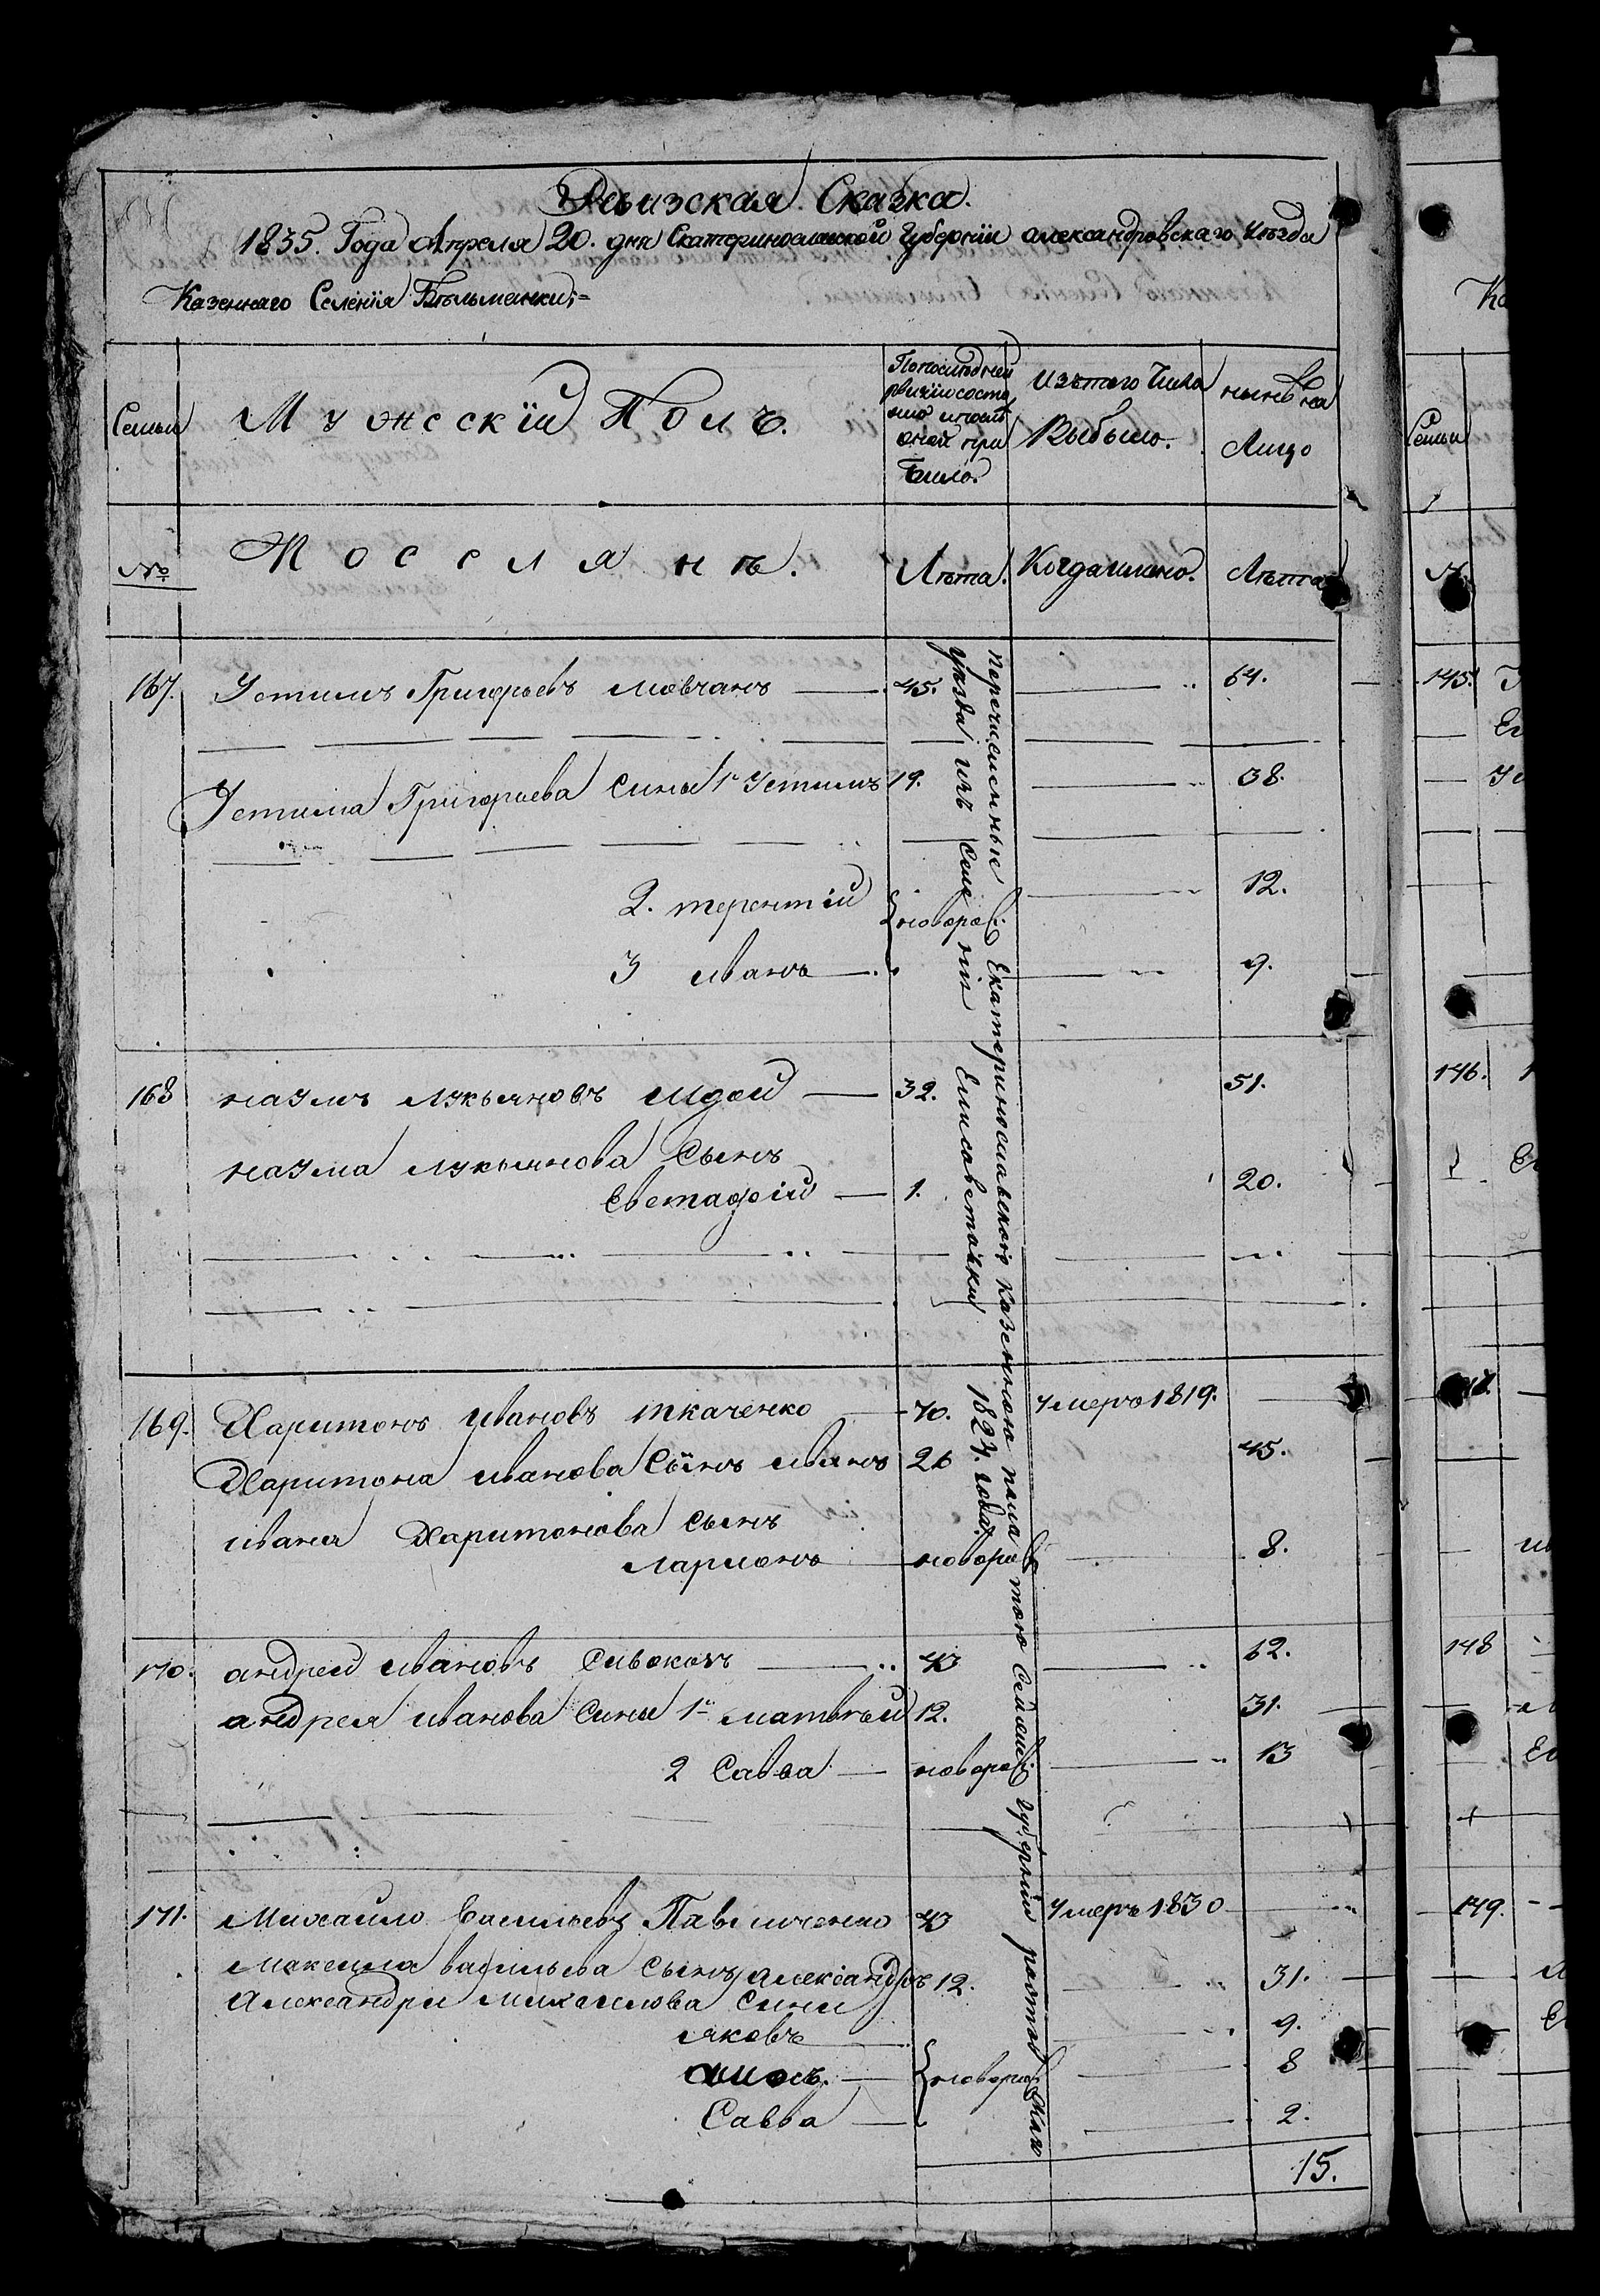 Ревизская Сказка.
1835. Года Апреля 20. дня Екатеринославской Губернїи александровскаго Уезда
Казеннаго Селенїя Бельманки;=
Семьи
Мужескїй Полъ.
По последней ревизїи состояло и после оной прибыло.
Изъ того Числа Выбыло.
Ныне на Лицо
№
Поселянъ.
Лета.
Когда имено.
Лета
167. Устимъ Григорьевъ мовчанъ 45. 64.
Устима Григорьева сины 1й Устимъ 19. 38.
2. терентїй новорож: 12.
3 иванъ 9.
168 наумъ лукьяновъ Шдой 32. 51.
наума лукьянова Сынъ
Евстафїй 1. 20.
169. Харитонъ ивановъ ткаченко 70. Умеръ 1819.
Харитона иванова Сынъ иванъ 26 45.
ивана Харитонова сынъ
ларионъ новорож 8.
170. андрей ивановъ Сивоконъ 43 62.
андрея иванова Сины 1й матвей 12. 31.
2 Савва новорож: 13
171. Михайло Васильевъ Павличенко 43 Умеръ 1830
Михаила васильева Сынъ александръ 12. 31.
Александра михаилова Сини
яковъ 9.
амосъ. новорож: 8
Савва 2.
15.
перечисленные Екатеринославскою Казенною палатою Сей же губернии ростовскаго
уезда изъ селения Елисоветовки 1824. года.
Семьи
145.
146.
148
149.